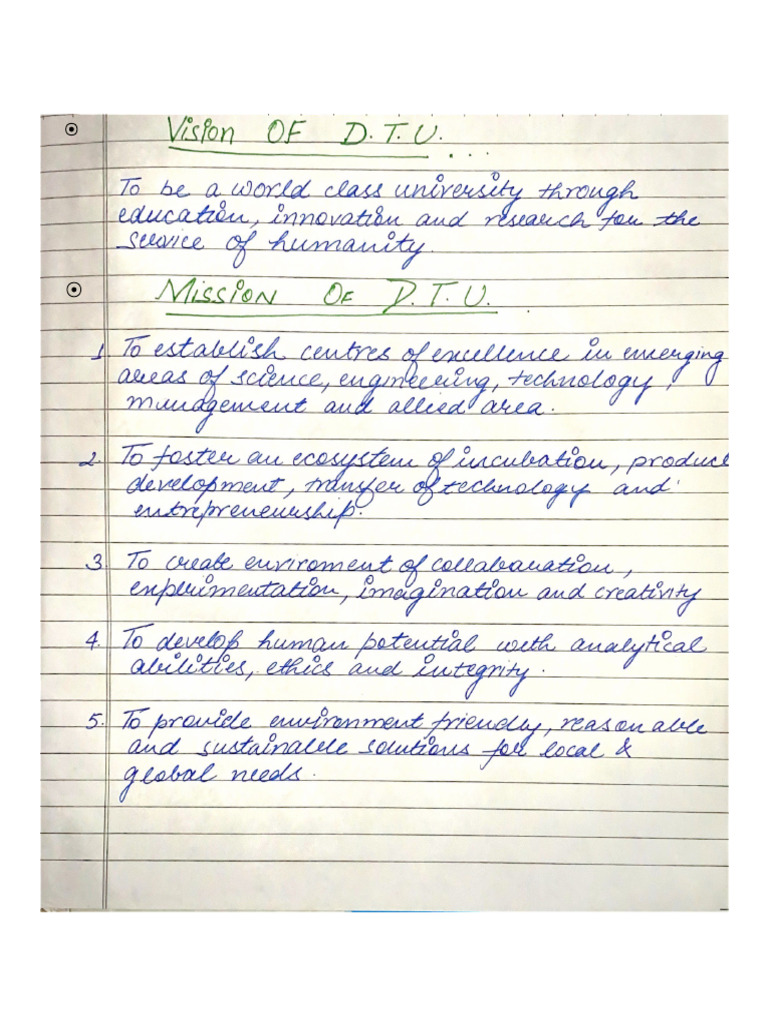 Vision OF D.T.U. ...
To be a world class university through
education, innovation and research for the
service of humanity.
Mission OF D.T.U. .
1. To establish centres of excellence in emerging
areas of science, engineering, technology,
management and allied area.
2. To foster an ecosystem of incubation, product
development, transfer of technology and
entrepreneurship.
3. To create enviroment of collaboration,
experimentation, imagination and creativity
4. To develop human potential with analytical
abilities, ethics and integrity.
5. To provide environment friendly, reasonable
and sustainable solutions for local &
global needs.